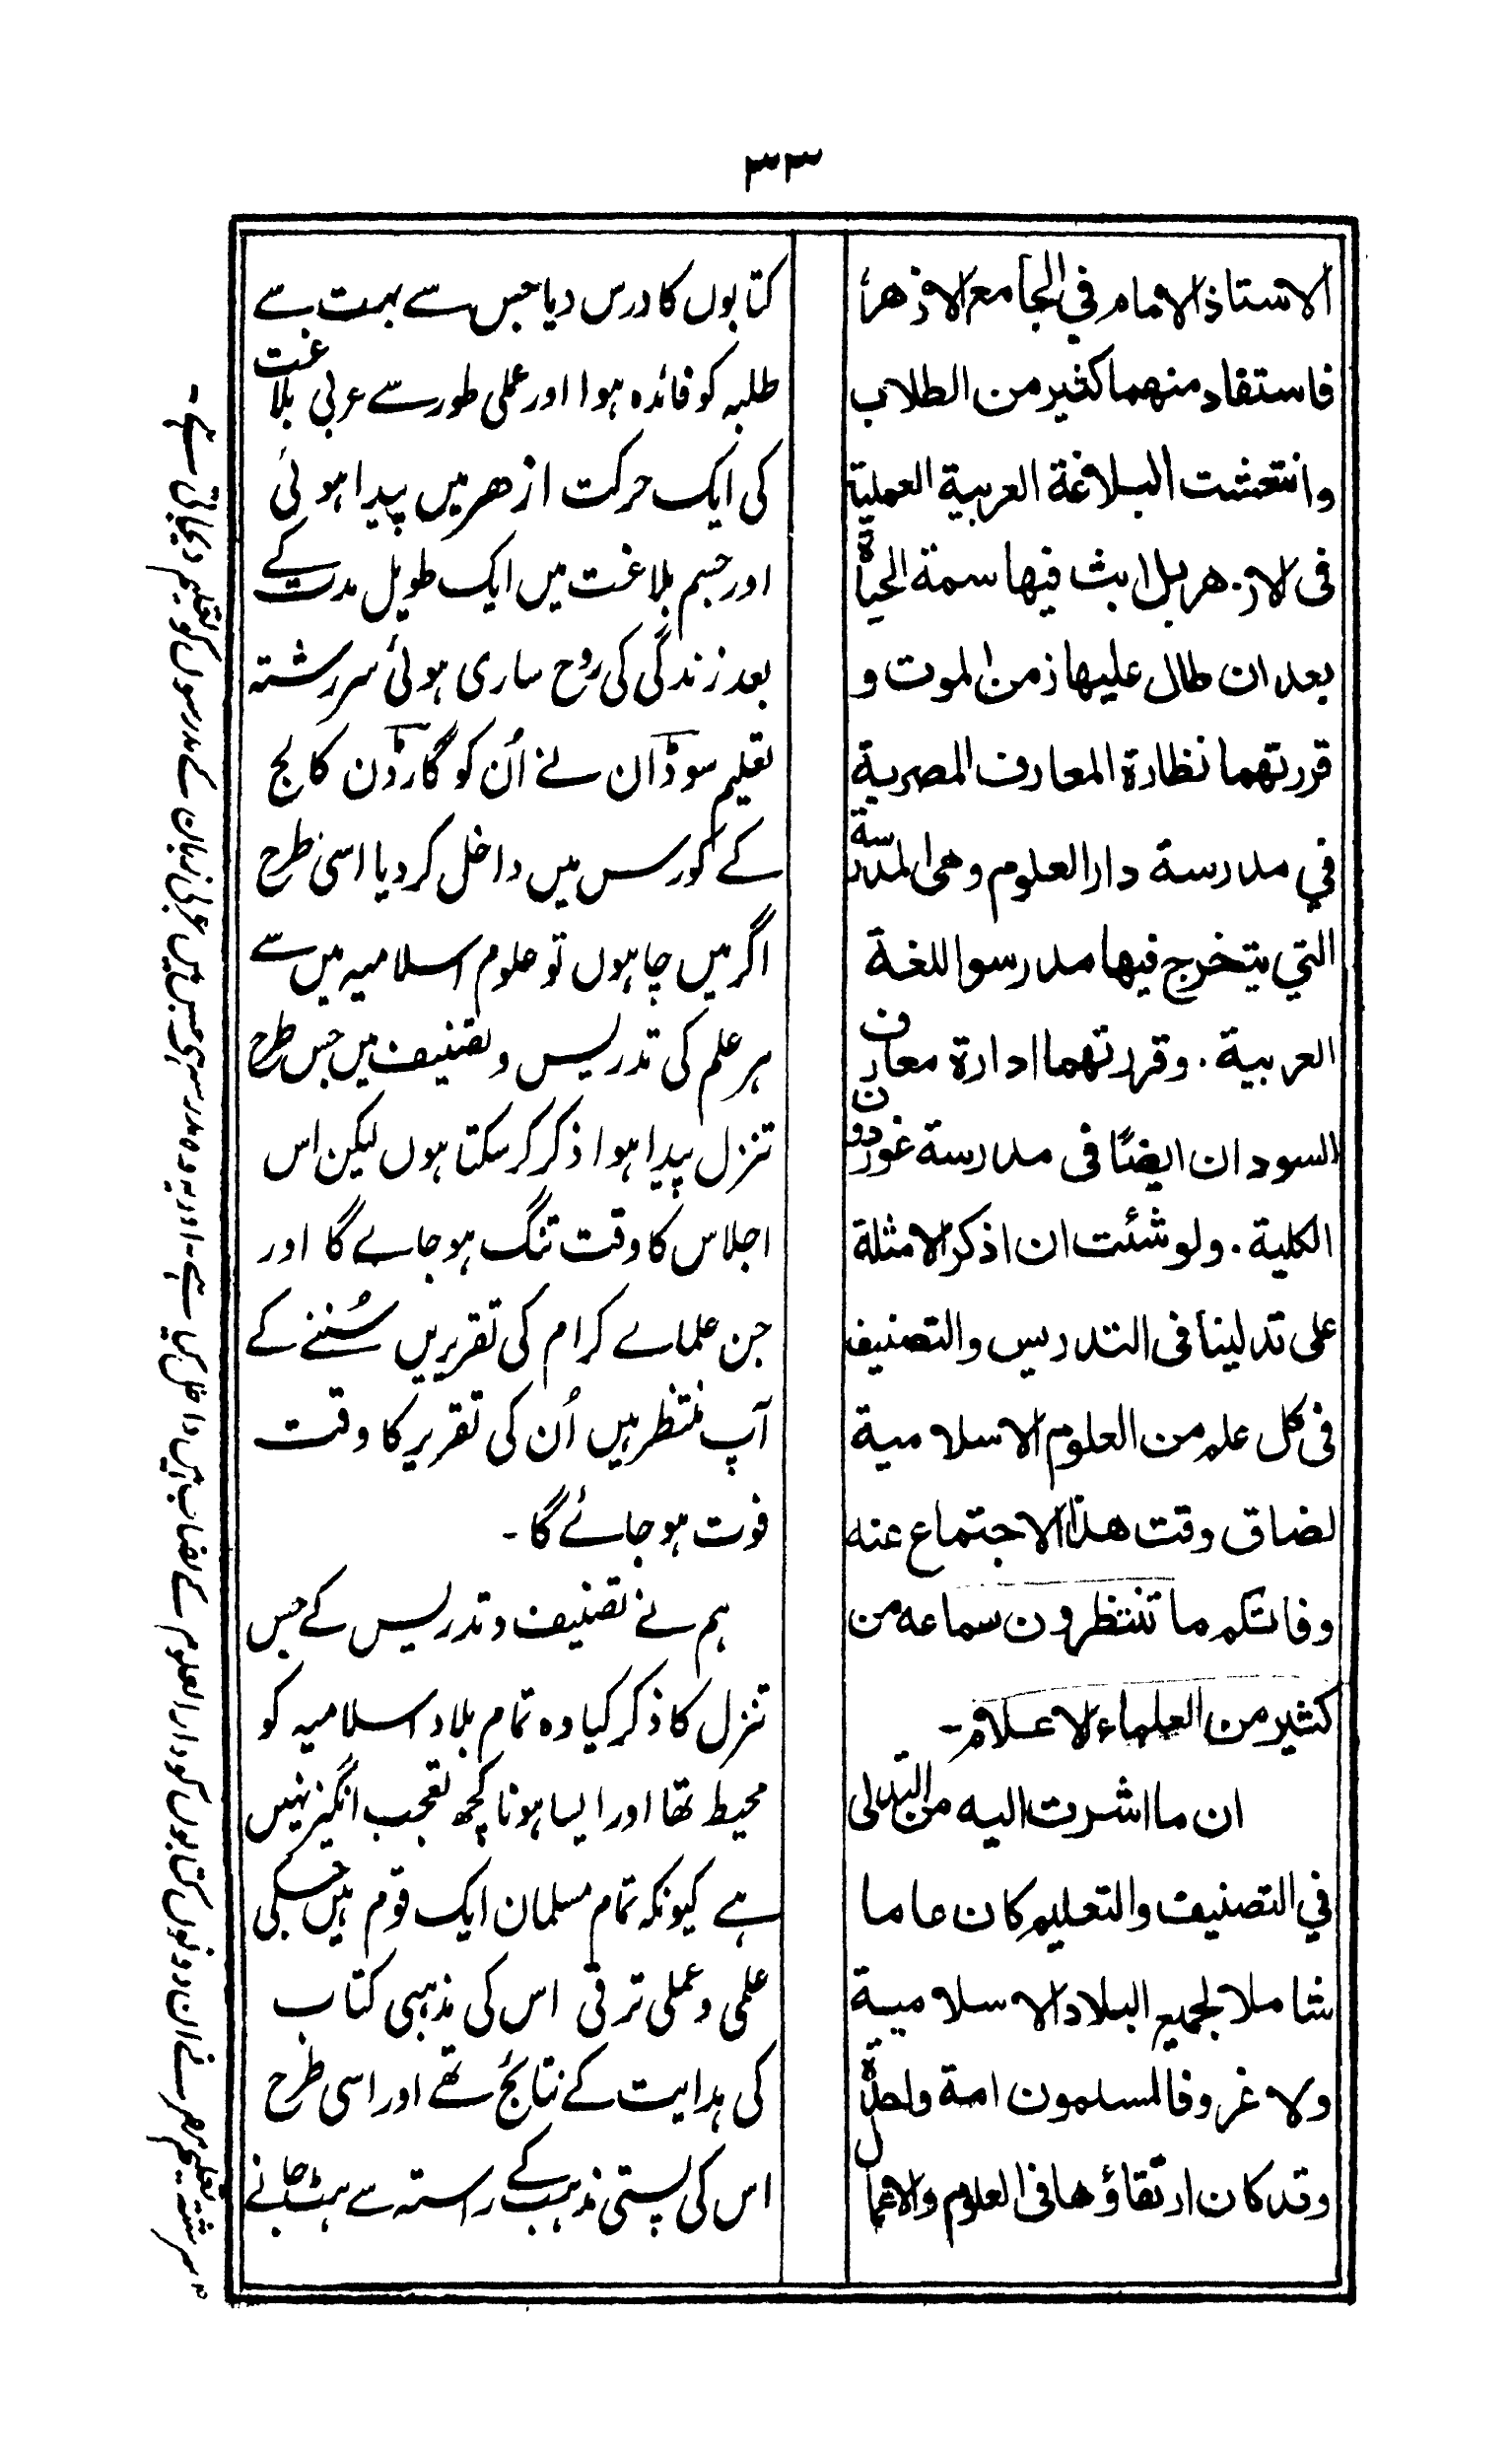 ٣٣
الاستاذ الامام في الجامع الازهر
فاستفاد منهما كثير من الطلاب
وانتعشت البلاغة العربية العملية
فى الازهر بل ابث فيها سمة الحياة
بعد ان طال عليها زمن الموت و
قررتهما نظارة المعارف المصرية
في مدرسة دار العلوم وهى المدرسة
التي يتخرج فيها مدرسو اللغة
العربية. وقررتهما ادارة معارف
السودان ايضًا فى مدرسة غوردون
الكلية. ولو شئت ان اذكر الامثلة
على تدلينا فى التدريس والتصنيف
فى كل علم من العلوم الاسلامية
لضاق وقت هذا الاجتماع عنه
وفاتكم ما تنتظرون سماعه من
كثير من العلماء الاعلام ـ
ان ما اشرت اليه من التدلى
في التصنيف والتعليم كان عاما
شاملا لجميع البلاد الاسلامية
ولا غرو فالمسلمون امة واحدة
وقد كان ارتقاؤها فى العلوم والاعمال
کتابوں کا درس دیا جس سے بہت سے
طلبہ کو فائدہ ہوا اور عملی طور سے عربی بلاغت
کی ایک حرکت ازھر میں پیدا ہوئی
اور جسم بلاغت میں ایک طویل مدت کے
بعد زندگی کی روح ساری ہوئی سررشتہ
تعلیم سوڈان نے اُن کو گارڈن کالج
کے کورس میں داخل کر دیا اسی طرح
اگر میں چاہوں تو علوم اسلامیہ میں سے
ہر علم کی تدریس و تصنیف میں جس طرح
تنزل پیدا ہوا ذکر کر سکتا ہوں لیکن اس
اجلاس کا وقت تنگ ہو جاے گا اور
جن علماے کرام کی تقریریں سُننے کے
آپ منتظر ہیں اُن کی تقریر کا وقت
فوت ہو جائے گا ۔
ہم نے تصنیف و تدریس کے جس
تنزل کا ذکر کیا وہ تمام بلاد اسلامیہ کو
محیط تھا اور ایسا ہونا کچھ تعجب انگیز نہیں
ہے کیونکہ تمام مسلمان ایک قوم ہیں جسکی
علمی و عملی ترقی اس کی مذہبی کتاب
کی ہدایت کے نتائج تھے اور اسی طرح
اس کی پستی مذہب کے راستہ سے ہٹ جانے
سررشتہ تعلیم مصر نے ان دونوں کتابوں کو دار العلوم کے نصاب میں داخل کیا ہے۔ اور یہ وہ مدرسہ ہے جس میں عربی زبان کے مدرسوں کو تعلیم دیجاتی ہے ۔